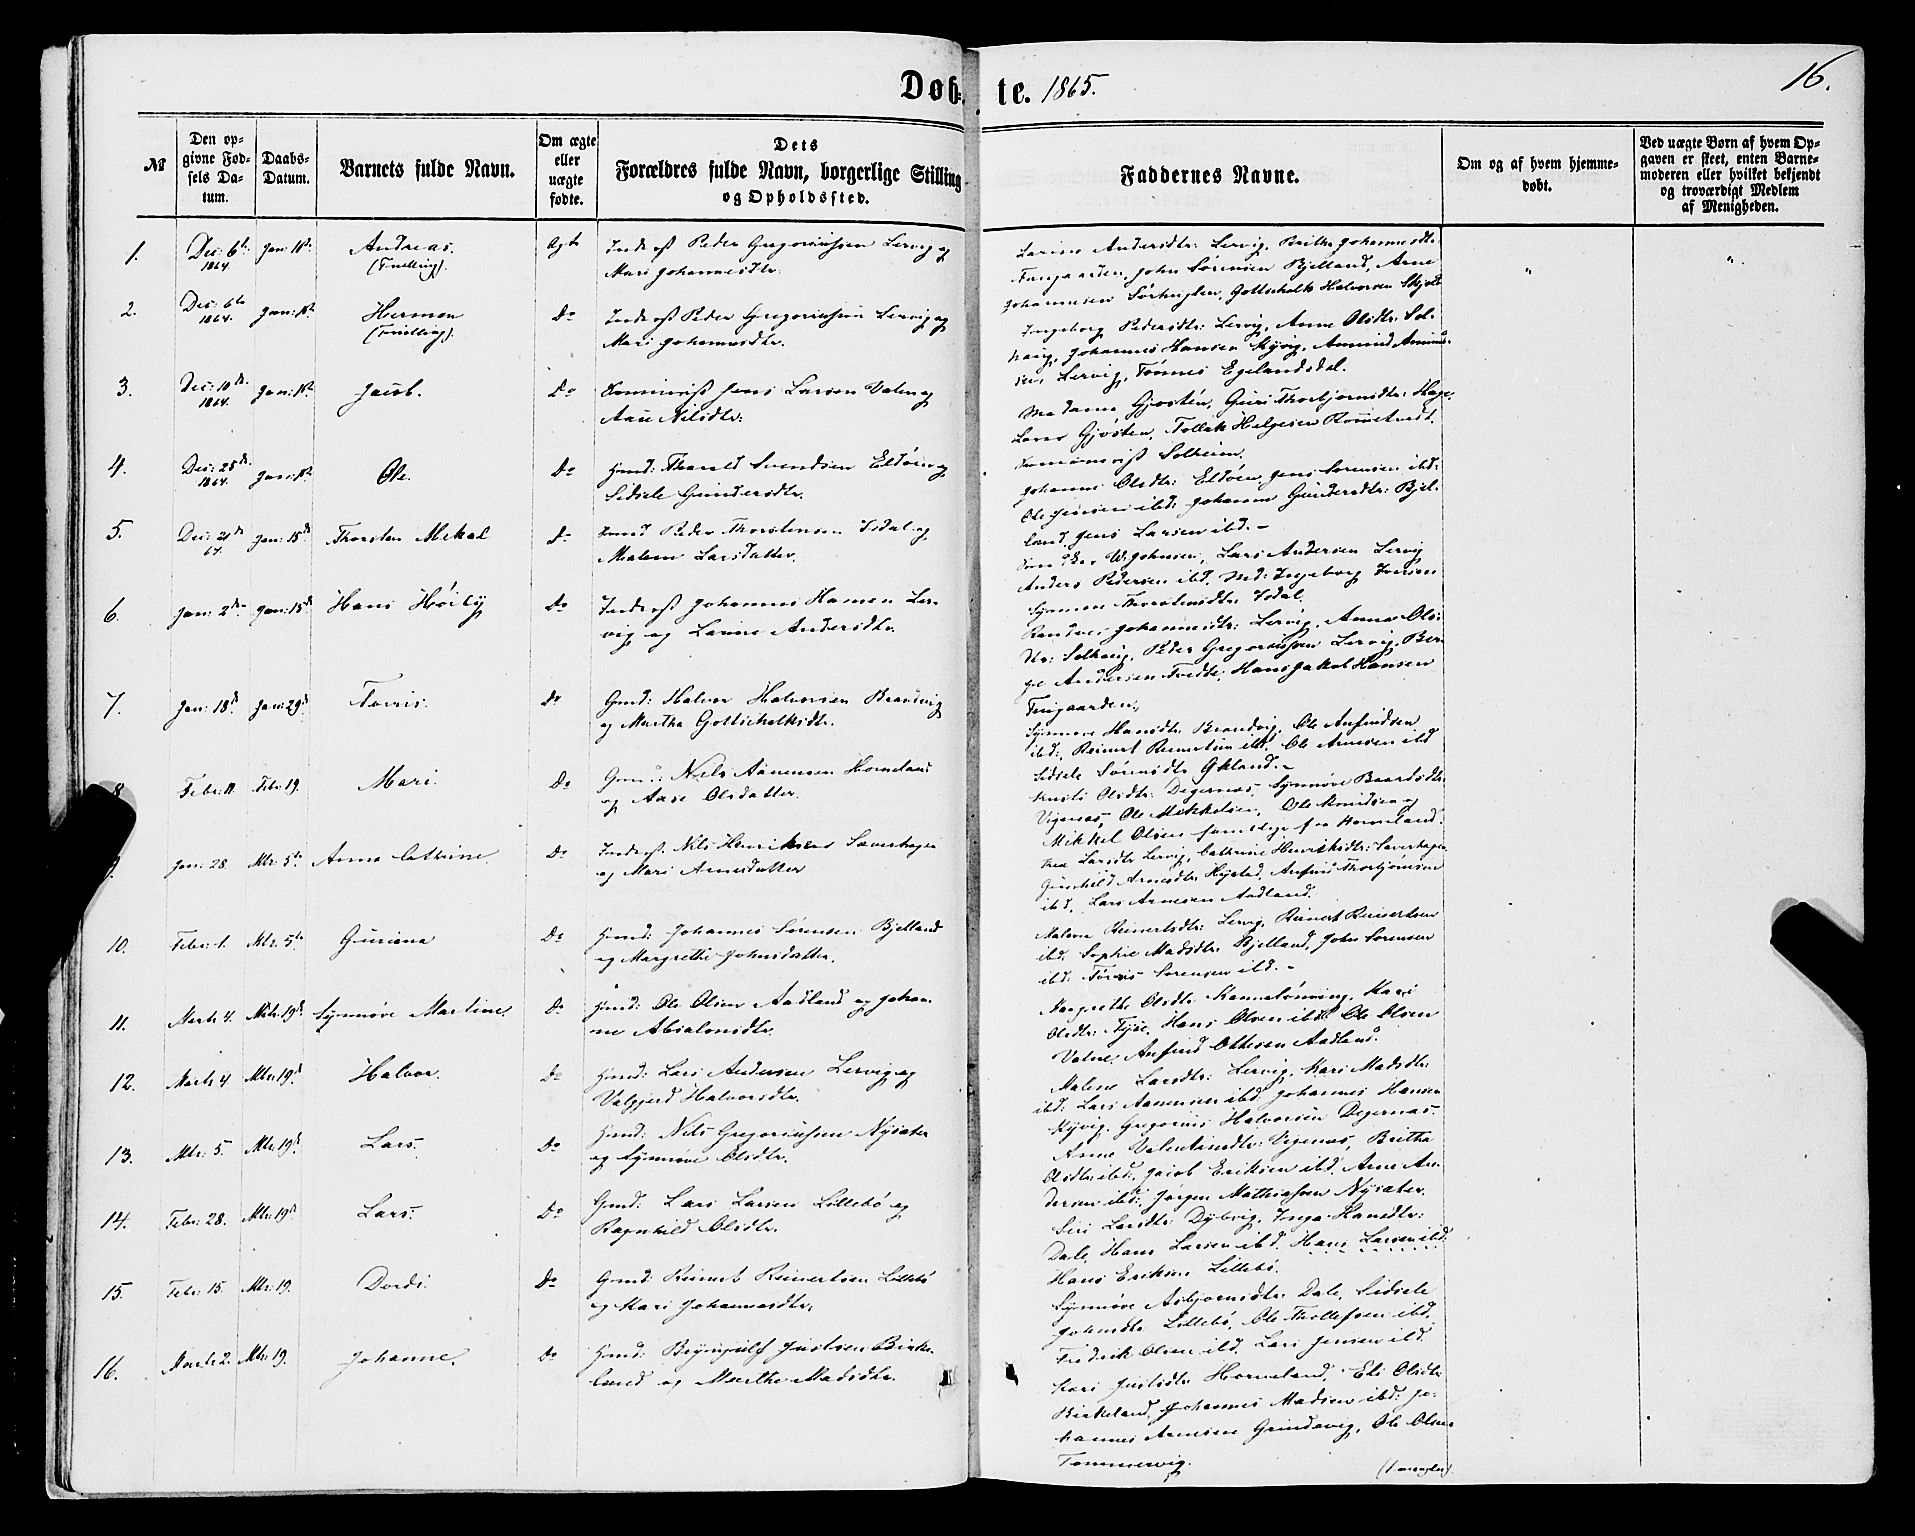 Døb- te. 1865.
16.
№
Den opgivne Fødsels Datum.
Daabs-Datum.
Barnets fulde Navn.
Om ægte eller uægte fødte.
Dets Forældres fulde Navn, borgerlige Stilling og Opholdssted.
Faddernes Navne.
Om og af hvem hjemmedøbt.
Ved uægte Børn af hvem Opgaven er skeet, enten Barnemoderen eller hvilket bekjendt og troværdigt Medlem af Menigheden.
1. Dec: 6te 1864. Jan: 1ste Andreas. (Tvilling). Ægte
Inderst Peder Gregoriussen Lervig og
Mari Johannesdtr.
Larine Andersdtr: Lervig, Britha Johannesdtr.
John Sørensen Bjelland, Arne
Johannesen Gottschalk Halvorsen
2. Dec: 6te 1864. Jan: 1ste Herman (Tvilling). Do
Inderst Peder Gregoriussen Lervig og
Mari Johannesdtr.
Ingeborg Pedersdtr: Lervig, Anne Olsdtr. Sol-
haug, Johannes Hansen Kyvig, Amund Amund-
sen Lervig, Tønnes Egelandsdal.
3. Dec: 10de 1864. Jan: 1ste Jacob. Do
Jens Larsen Valen og
Aase Nilsdtr:
Madame Gjøsten, Guri Thorbjørnsdtr:
Gjøsten, Tollek Helgesen
Solheim.
4. Dec: 25de 1864. Jan: 1ste Ole. Do
Gmd: Tharald Svendsen Eldøen og
Sidsele Gundersdtr.
Johanne Olsdtr: Eldøen, Jens Sørensen ibd:
Ole Jensen ibd: Johanne Gundersdtr: Bjel-
land, Jens Larsen ibd. -
5. Dec: 21de 64. Jan: 15de Thorsten Mikal Do
Peder Thorstensen Isdal og
Malene Larsdatter.
Lars Andersen Lervig
Anders Pedersen ibd. Md: Ingeborg Iversen
Synneve Thorstensdtr. Isdal.
6. Jan: 2den Jan: 15de Hans Høiby Do
Inderst Johannes Hansen Ler-
vig og Larine Andersdtr.
Johannesdtr: Lervig, Anna Ols-
dtr: Solhaug, Peder Gregoriussen Lervig,
Andersen Tvedte, Hans Jakob Hansen
7. Jan: 18de Jan: 29de Torris. Do
Gmd: Halvor Halvorsen Brandvig
og Martha Gottschalksdtr.
Synneve Hansdtr. Brandvig, Ole Anfindsen
ibd: Reinert Reinertsen ibd. Ole Arnesen ibd
Sidsele Sørensdtr. Økland. -
8. Febr: 11. Febr: 19. Mari. Do
Gmd: Nels Aanensen Horneland
og Aase Olsdatter.
Kristi Olsdtr: Degernæs, Synnøve Baardsdtr.
Vigenæs, Ole Mikkelsen, Ole Knudsen og
Mikkel Olsen samtlige fra Horneland.
Jan: 28. Mts: 5te Anna Cathrine Do
Inderst. Nils Henriksen Sæverhagen
og Mari Arnesdatter
Larsdtr. Lervig, Cathrine Henriksdtr: Sæverhagen
Gunhild Arnesdtr. Hystad, Anfind Thorbjørnsen
ibd. Lars Arnesen Aadland.
10. Febr: 1. Mts: 5te Guriana Do
Gmd: Johannes Sørensen Bjelland
og Margrethe Johnsdatter.
Malene Reinertsdtr. Lervig, Reinert Reinertsen
ibd. Sophie Madsdtr. Bjelland, John Sørensen
ibd: Torris Sørensen ibd. -
11. Marts 4. Mts: 19de Synnøve Martine. Do
Gmd: Ole Olsen Aadland og Johan-
ne Absalonsdtr.
Margrethe Olsdtr. Kari
Olsdtr: Hans Olsen ibd. Ole Olsen
Valne, Anfind Ottesen Aadland.
12. Marts 4 Mts: 19de Halvor. Do
Gmd: Lars Andersen Lervig og
Valgjerd Halvorsdtr.
Malene Larsdtr: Lervig, Kari Madsdtr.
ibd: Lars Aanensen ibd. Johannes Hansen
Kyvig, Gregorius Halvorsen Degernæs.
13. Mts: 5. Mts: 19de Lars. Do
Gmd: Nils Gregoriussen Nysæter
og Synnøve Olsdtr.
Anne Valentinsdtr: Vigenæs, Britha
Olsdtr ibd: Jacob Eriksen ibd. Arne An-
dersen ibd: Jørgen Mathiassen Nysæter.
14. Febr: 28. Mts: 19de Lars. Do
Gmd: Lars Larsen Lillebø og
Ragnhild Olsdtr.
Siri Larsdtr. Dybvig, Inga Hansdtr:
Dale, Hans Larsen ibd. Hans Larsen ibd.
Hans Eriksen Lillebø.
15. Febr: 15. Mts: 19. Dordi. Do
Gmd: Reinert Reinertsen Lillebø
og Mari Johannesdtr.
Synnøve Asbjørnsdtr. Dale, Sidsele
Johnsdtr. Lillebø, Ole Thollefsen ibd.
Fredrik Olsen ibd. Lars Jensen ibd.
16. Marts 2. Mts: 19. Johanne. Do
Gmd: Brynjulf Justsen Birke-
land og Marthe Madsdtr.
Kari Justsdtr. Horneland, Eli Olsdtr.
Birkeland, Johannes Madsen ibd: Jo-
hannes Arnesen Grindevig, Ole Olsen
Tømmervig.